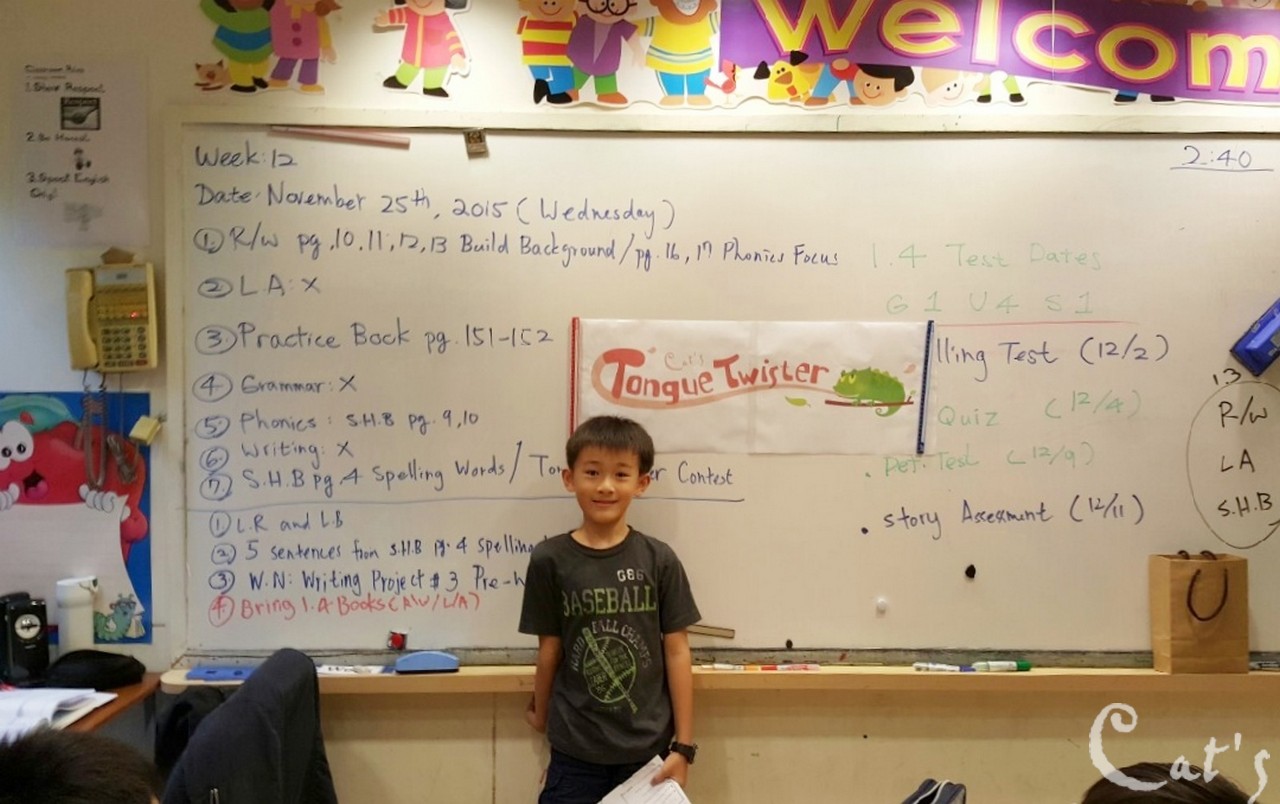 Welcom
Classroom Rules
1. Show Respect
2. Be Honest
3. Speak English
Only!
2:40
Week: 12
Date: November 25th, 2015 (Wednesday)
① R/W pg. 10, 11, 12, 13 Build Background / pg. 16, 17 Phonics Focus
② L.A: X
③ Practice Book pg. 151-152
④ Grammar: X
⑤ Phonics: S.H.B pg. 9, 10
⑥ Writing: X
⑦ S.H.B pg. 4 Spelling Words / Ton r Contest
① L.R and L.B
② 5 sentences from S.H.B pg. 4 spelling
③ W.N: Writing Project #3 Pre-
④ Bring 1.4 Books
Cat's
Tongue Twister
1.4 Test Dates
G1 U4 S1
lling Test (12/2)
Quiz (12/4)
. Test (12/9)
• Story Assesment (12/11)
13
R/W
LA
S.H.B
G86
BASEBALL
BALL CHAMPS
Cat's